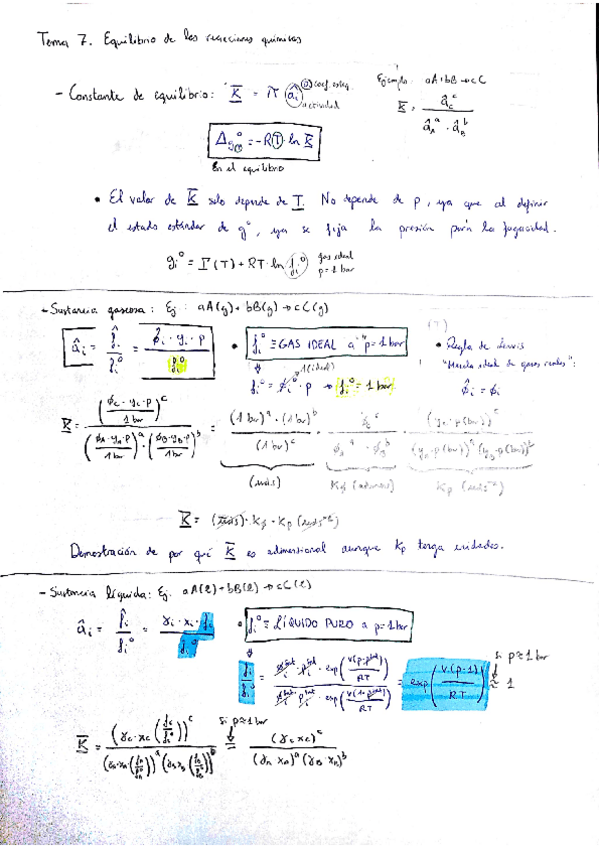 Tema 7. Equilibrio de las reacciones químicas
- Constante de equilibrio: K = π (âi) ⓥ coef. esteq. actividad
Ejemplo: aA+bB→cC
K = âc^c / âA^a · âB^b
Δg° = -RT · ln K
En el equilibrio
• El valor de K solo depende de T. No depende de p, ya que al definir
el estado estándar de g°, ya se fija la presión para la fugacidad.
gi° = Γ(T) + RT · ln fi° gas ideal p = 1 bar
- Sustancia gaseosa: Ej: aA(g) + bB(g) → cC(g)
âi = f̂i / fi° = ϕ̂i · yi · p / fi°
• fi° ≡ GAS IDEAL a p = 1 bar
fi° = ϕi° · p → fi° = 1 bar
1 (ideal)
(T)
• Regla de Lewis
"Mezcla ideal de gases reales":
ϕ̂i = ϕi
K = (ϕc · yc · p / 1 bar)^c / (ϕA · yA · p / 1 bar)^a · (ϕB · yB · p / 1 bar)^b = (1 bar)^a · (1 bar)^b / (1 bar)^c · ϕc^c / ϕA^a · ϕB^b · (yc · p(bar))^c / (yA · p(bar))^a (yB · p(bar))^b
(uds) Kϕ (adimens) Kp (uds^-1)
K = (uds) · Kϕ · Kp (uds^-1)
Demostración de por qué K es adimensional aunque Kp tenga unidades.
- Sustancia líquida: Ej. aA(l) + bB(l) → cC(l)
âi = f̂i / fi° = γi · xi · fi / fi°
• fi° ≡ LÍQUIDO PURO a p = 1 bar
fi / fi° = ϕi^sat · pi^sat · exp(V(p-p^sat) / RT) / ϕi^sat · pi^sat · exp(V(1-p^sat) / RT) = exp(V(p-1) / RT) ≈ 1
si p≈1 bar
K = (γc · xc (fc / fc°))^c / (γA · xA (fA / fA°))^a (γB · xB (fB / fB°))^b ≈ (γc xc)^c / (γA xA)^a (γB xB)^b
si p≈1 bar